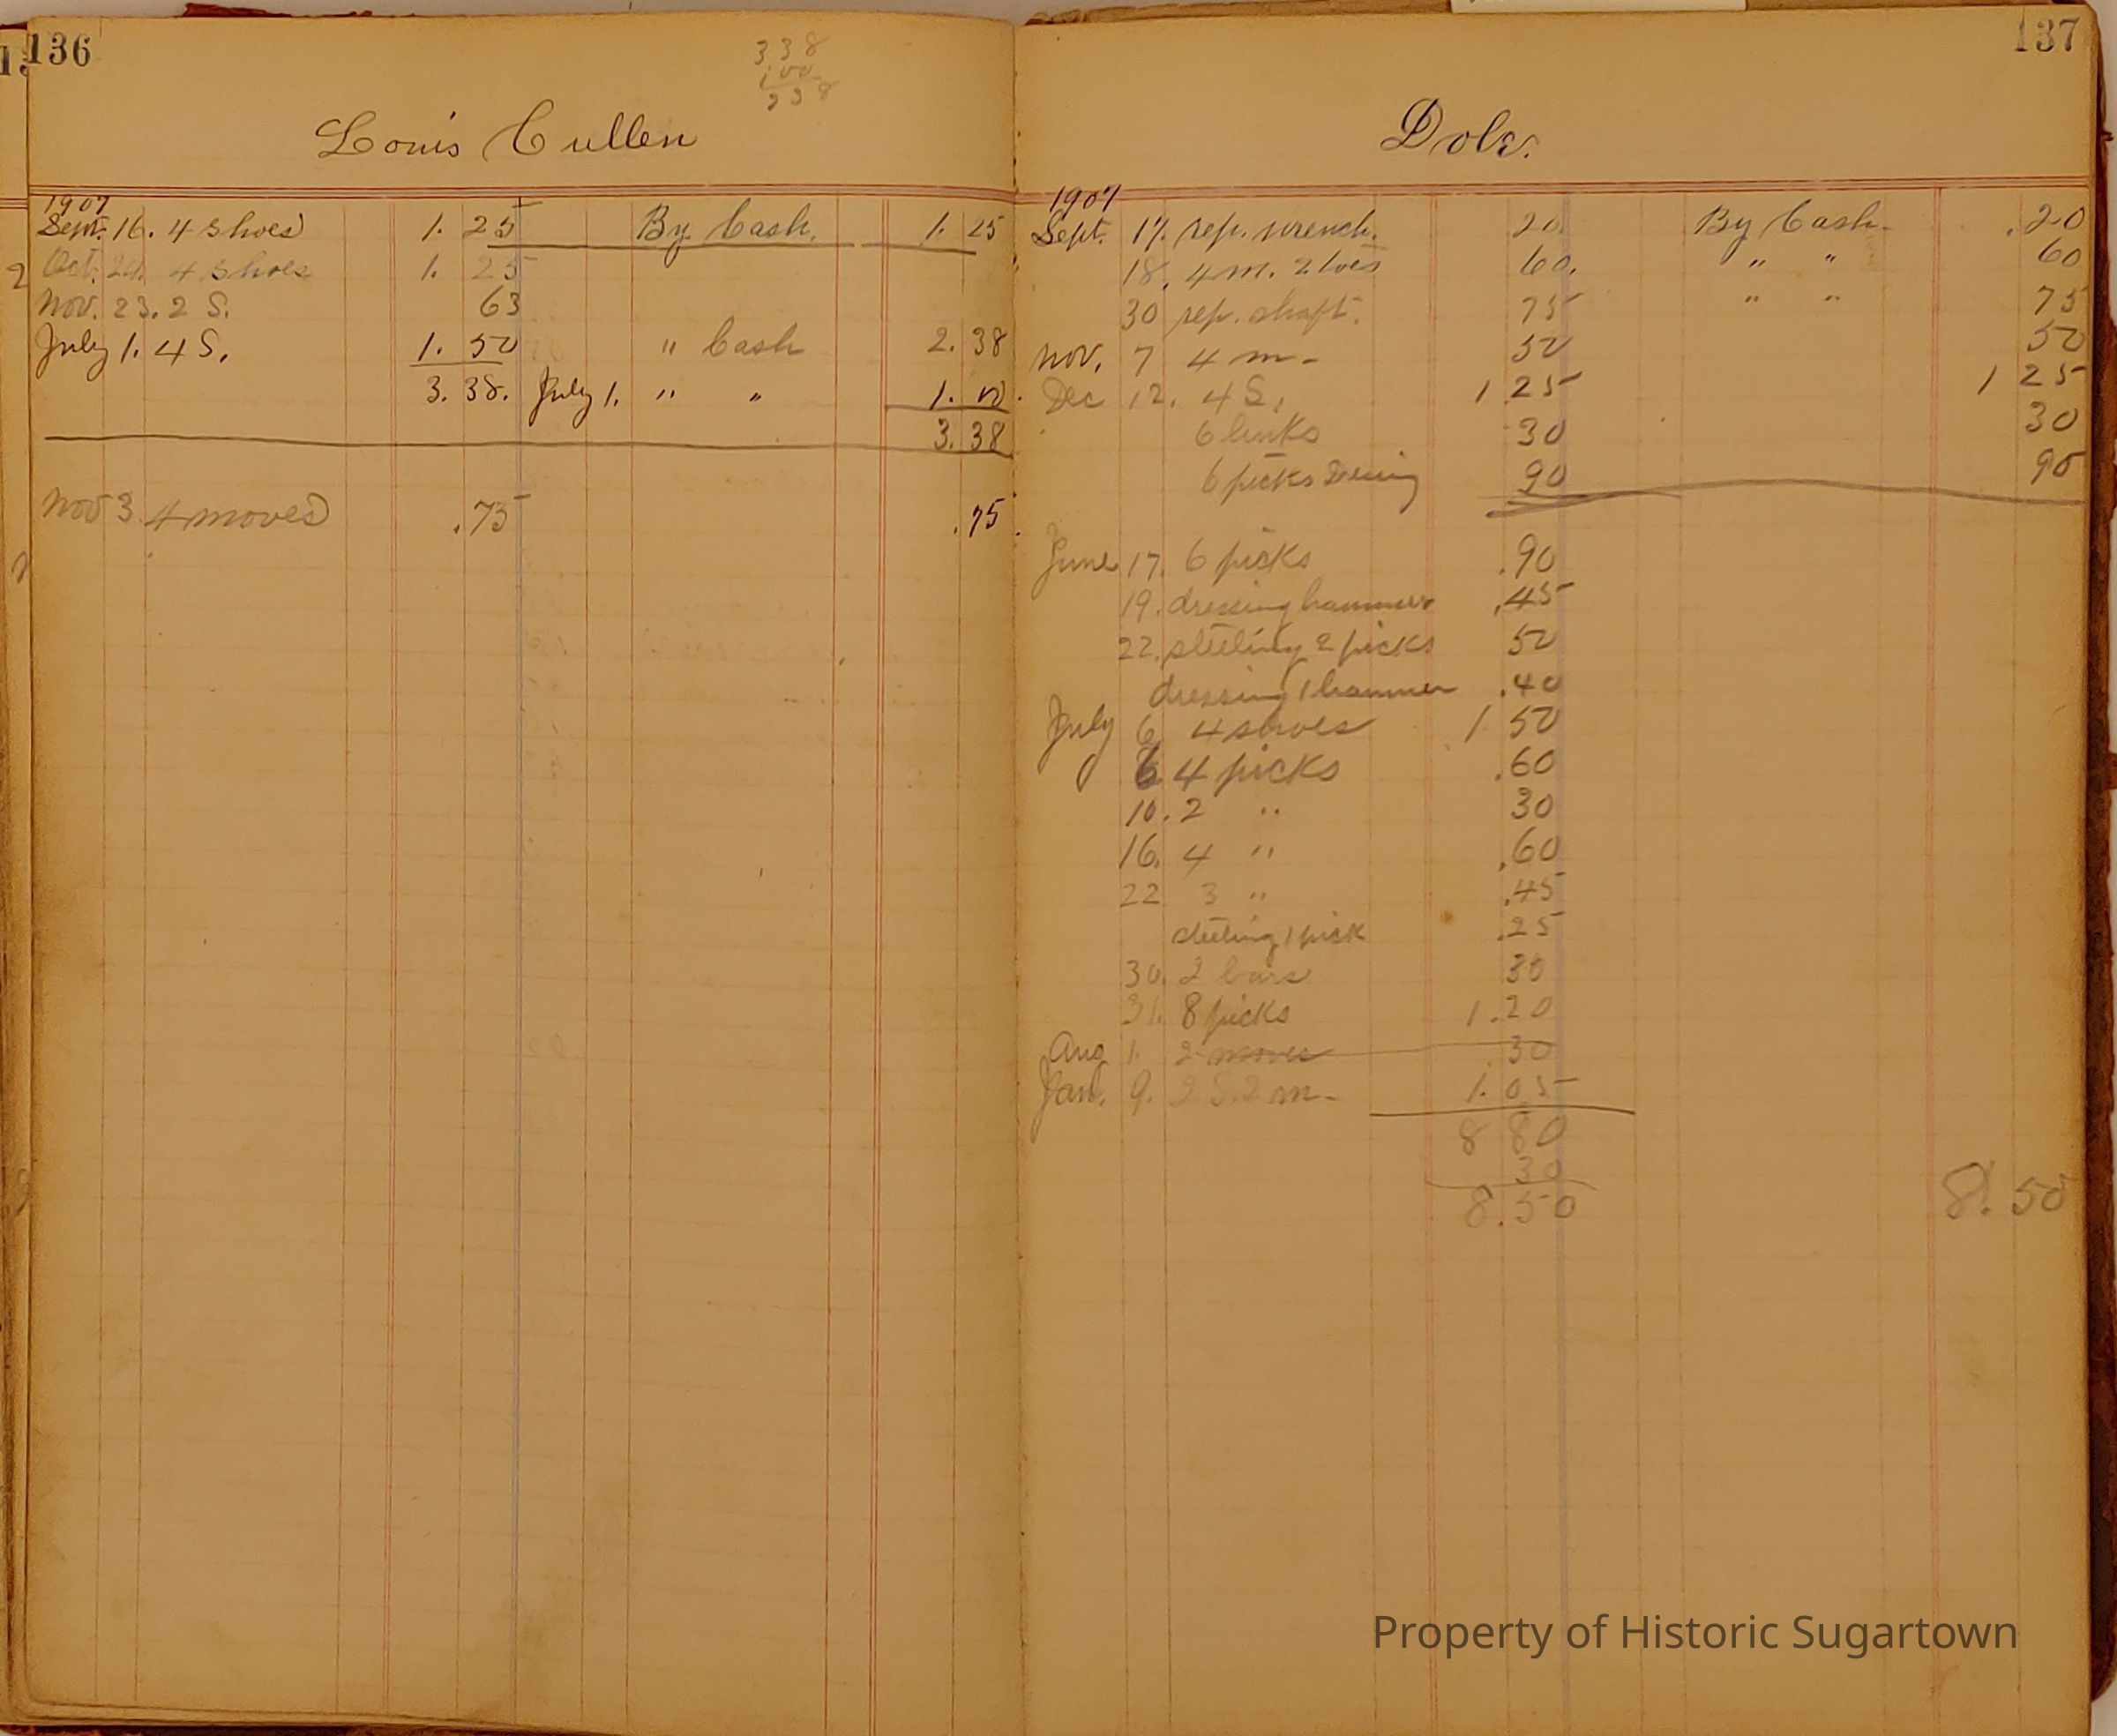 136
338
100
238
Louis Cullen
1907
Sept. 16. 4 shoes 1. 25 By Cash. 1. 25
Oct. 24. 4 shoes 1. 25
Nov. 23. 2 S. 63
July 1. 4 S. 1. 50 " Cash 2. 38
3. 38. July 1. " " 1. 00.
3. 38
Nov 3 4 moves .75 .75.
137
Dole.
1907
Sept. 17. rep. wrench. 20. By Cash. .20
18. 4 m. 2 toes 60. " " 60
30 rep. shaft. 75 " " 75
Nov. 7 4 m- 50 50
Dec 12. 4 S. 1 25 1 25
6 links 30 30
6 picks 90 90
June 17. 6 picks .90
19. dressing hammer .45
22. steeling 2 picks 50
dressing 1 hammer .40
July 6 4 shoes 1 50
6 4 picks .60
10. 2 " 30
16. 4 " .60
22 3 " .45
steeling 1 pick .25
30. 2 bars 30
31. 8 picks 1.20
Aug 1. 2 moves .30
Jan. 9. 2 S. 2 m- 1. 05
8 80
30
8.50 8. 50
Property of Historic Sugartown